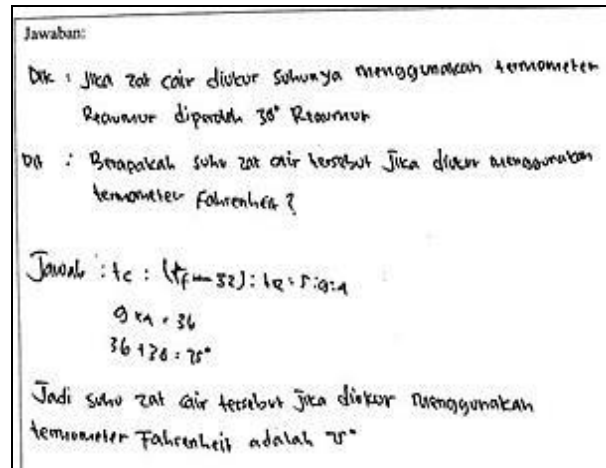 Jawaban:
Dik : Jika zat cair diukur suhunya menggunakan termometer
Reaumur diperoleh 38° Reaumur
Dit : Berapakah suhu zat cair tersebut jika diukur menggunakan
termometer Fahrenheit ?
Jawab : tc : (tf - 32) : tR = 5 : 9 : 4
9 x 4 = 36
36 + 38 = 75°
Jadi suhu zat cair tersebut jika diukur menggunakan
termometer Fahrenheit adalah 75°